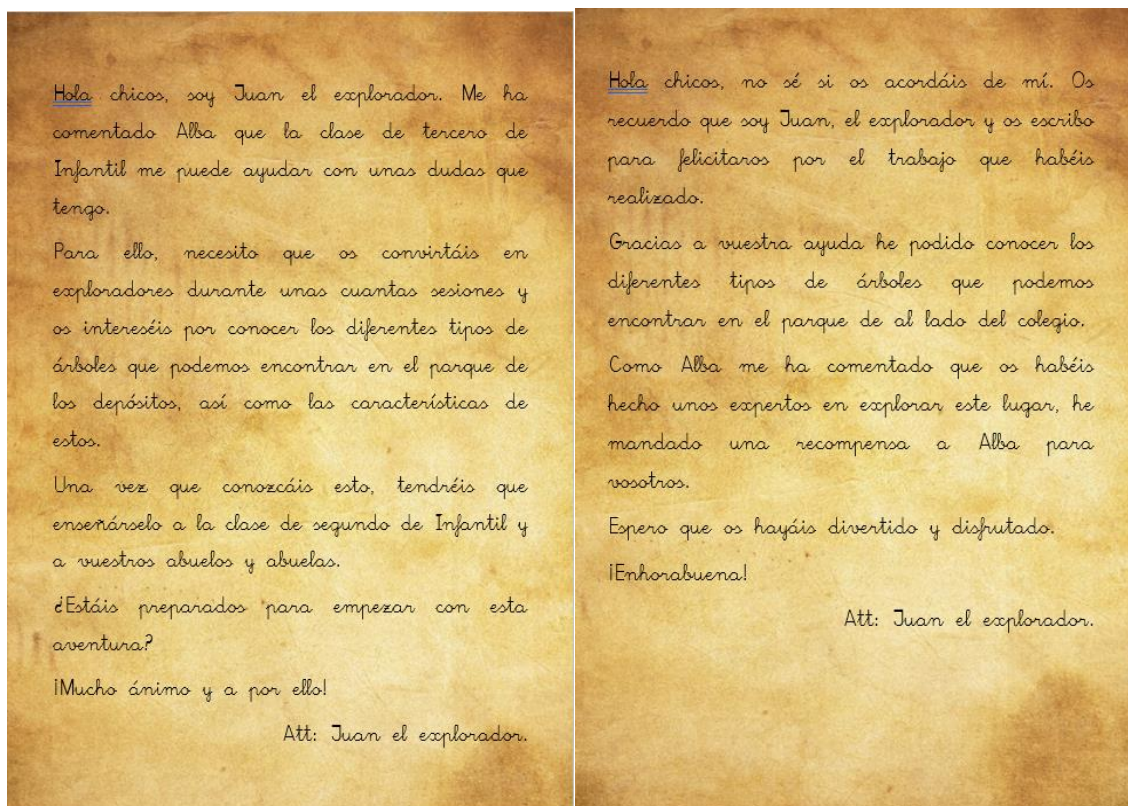 Hola chicos, soy Juan el explorador. Me ha
comentado Alba que la clase de tercero de
Infantil me puede ayudar con unas dudas que
tengo.
Para ello, necesito que os convirtáis en
exploradores durante unas cuantas sesiones y
os intereséis por conocer los diferentes tipos de
árboles que podemos encontrar en el parque de
los depósitos, así como las características de
estos.
Una vez que conozcáis esto, tendréis que
enseñárselo a la clase de segundo de Infantil y
a vuestros abuelos y abuelas.
¿Estáis preparados para empezar con esta
aventura?
¡Mucho ánimo y a por ello!
Att: Juan el explorador.
Hola chicos, no sé si os acordáis de mí. Os
recuerdo que soy Juan, el explorador y os escribo
para felicitaros por el trabajo que habéis
realizado.
Gracias a vuestra ayuda he podido conocer los
diferentes tipos de árboles que podemos
encontrar en el parque de al lado del colegio.
Como Alba me ha comentado que os habéis
hecho unos expertos en explorar este lugar, he
mandado una recompensa a Alba para
vosotros.
Espero que os hayáis divertido y disfrutado.
¡Enhorabuena!
Att: Juan el explorador.